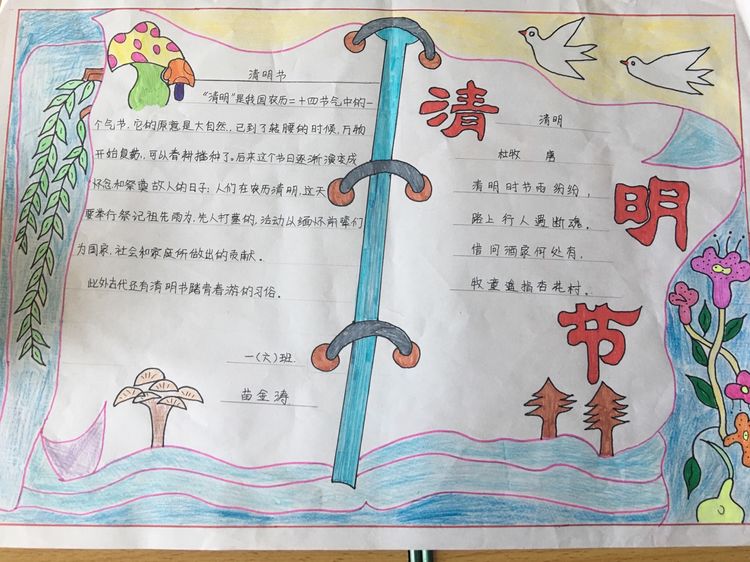 清明节
"清明"是我国农历二十四节气中的一
个节气,它的原意是大自然,已到了转腰的时候,万物
开始复苏,可以春耕播种了。后来这个节日逐渐演变成
怀念和祭奠故人的日子:人们在农历清明,这天
要举行祭记祖先雨为,先人打墓的,活动从缅怀前辈们
为国家,社会和家庭所做出的贡献。
此外古代还有清明书踏青春游的习俗。
一(六)班
苗金涛
清明节
清明
杜牧 唐
清明时节雨纷纷,
路上行人遇断魂。
借问酒家何处有,
牧童遥指杏花村。